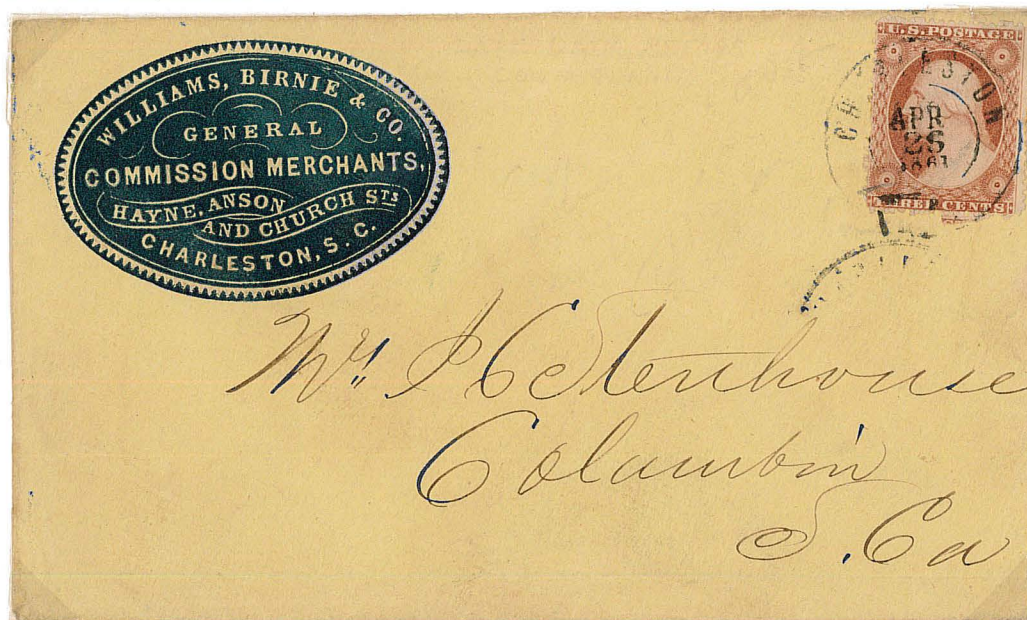 WILLIAMS, BIRNIE & CO.
GENERAL
COMMISSION MERCHANTS,
HAYNE, ANSON
AND CHURCH STS
CHARLESTON, S. C.
U.S. POSTAGE
CHARLESTON
APR
26
1861
THREE CENTS
Mr. J C Stenhouse
Columbia
S. Ca